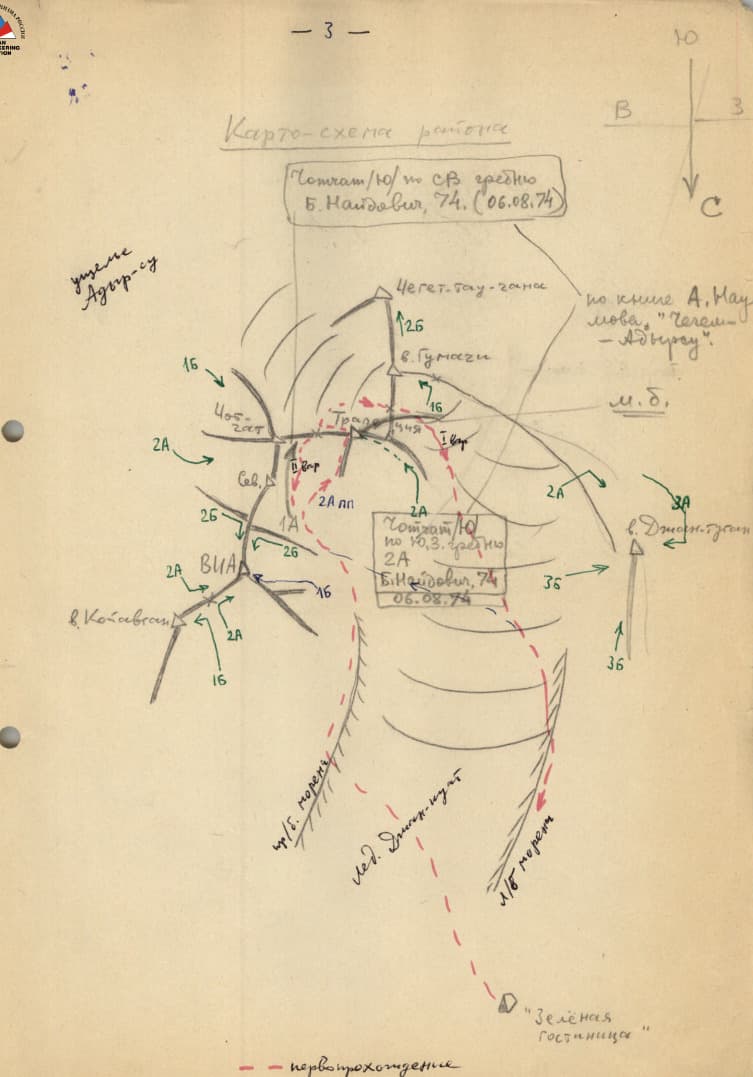 — 3 —
Ю
В
З
С
Карто-схема района
Чотчат/Ю/ по СВ гребню
Б. Найдович, 74. (06.08.74)
ущелье
Адыр-су
Чегет-тау-чана
по книге А. Нау
мова, "Чегем-
– Адырсу".
2Б
в. Гумачи
1Б
1Б
м. б.
Чот-
чат
Трапе
ция
I вар
2А
II вар
Сев.
2А пп
2А
2А
3А
1А
2Б
2Б
Чотчат/Ю/
по Ю.З. гребню
2А
Б. Найдович, 74
06.08.74
в. Джан-туган
ВИА
2А
1Б
3Б
в. Койавган
2А
1Б
3Б
пр/б. морена
лед. Джан-куат
л/б морена
"Зелёная
гостиница"
— — первопрохождение